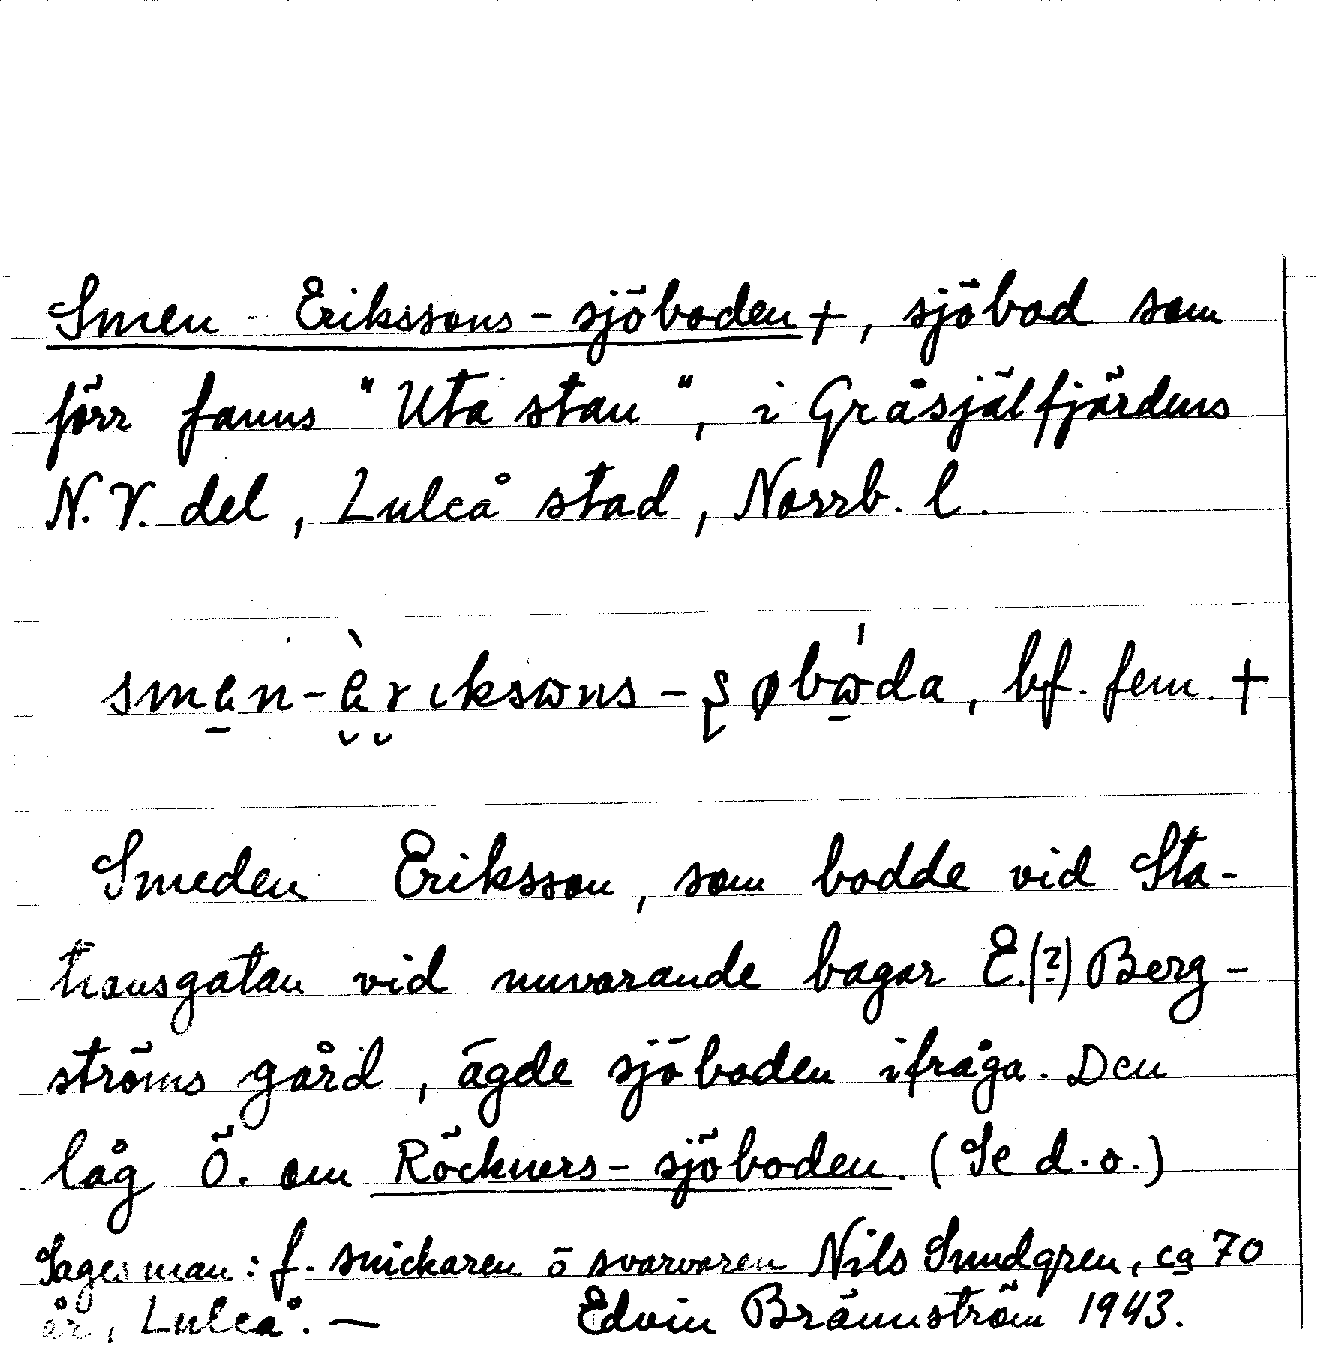 Smen-Erikssons-sjöboden +, sjöbod som
förr fanns "Uta stan", i Gråsjälfjärdens
N.V. del, Luleå stad, Norrb. l.
smen-èriksɷns-ʂøbɷ̀da, bf. fem. +
Smeden Eriksson, som bodde vid Sta-
tionsgatan vid nuvarande bagar E.(?) Berg-
ströms gård, ägde sjöboden ifråga. Den
låg Ö. om Röckners-sjöboden. (Se d.o.)
Sagesman: f. snickaren o svarvaren Nils Sundgren, ca 70
år, Luleå. — Edvin Brännström 1943.